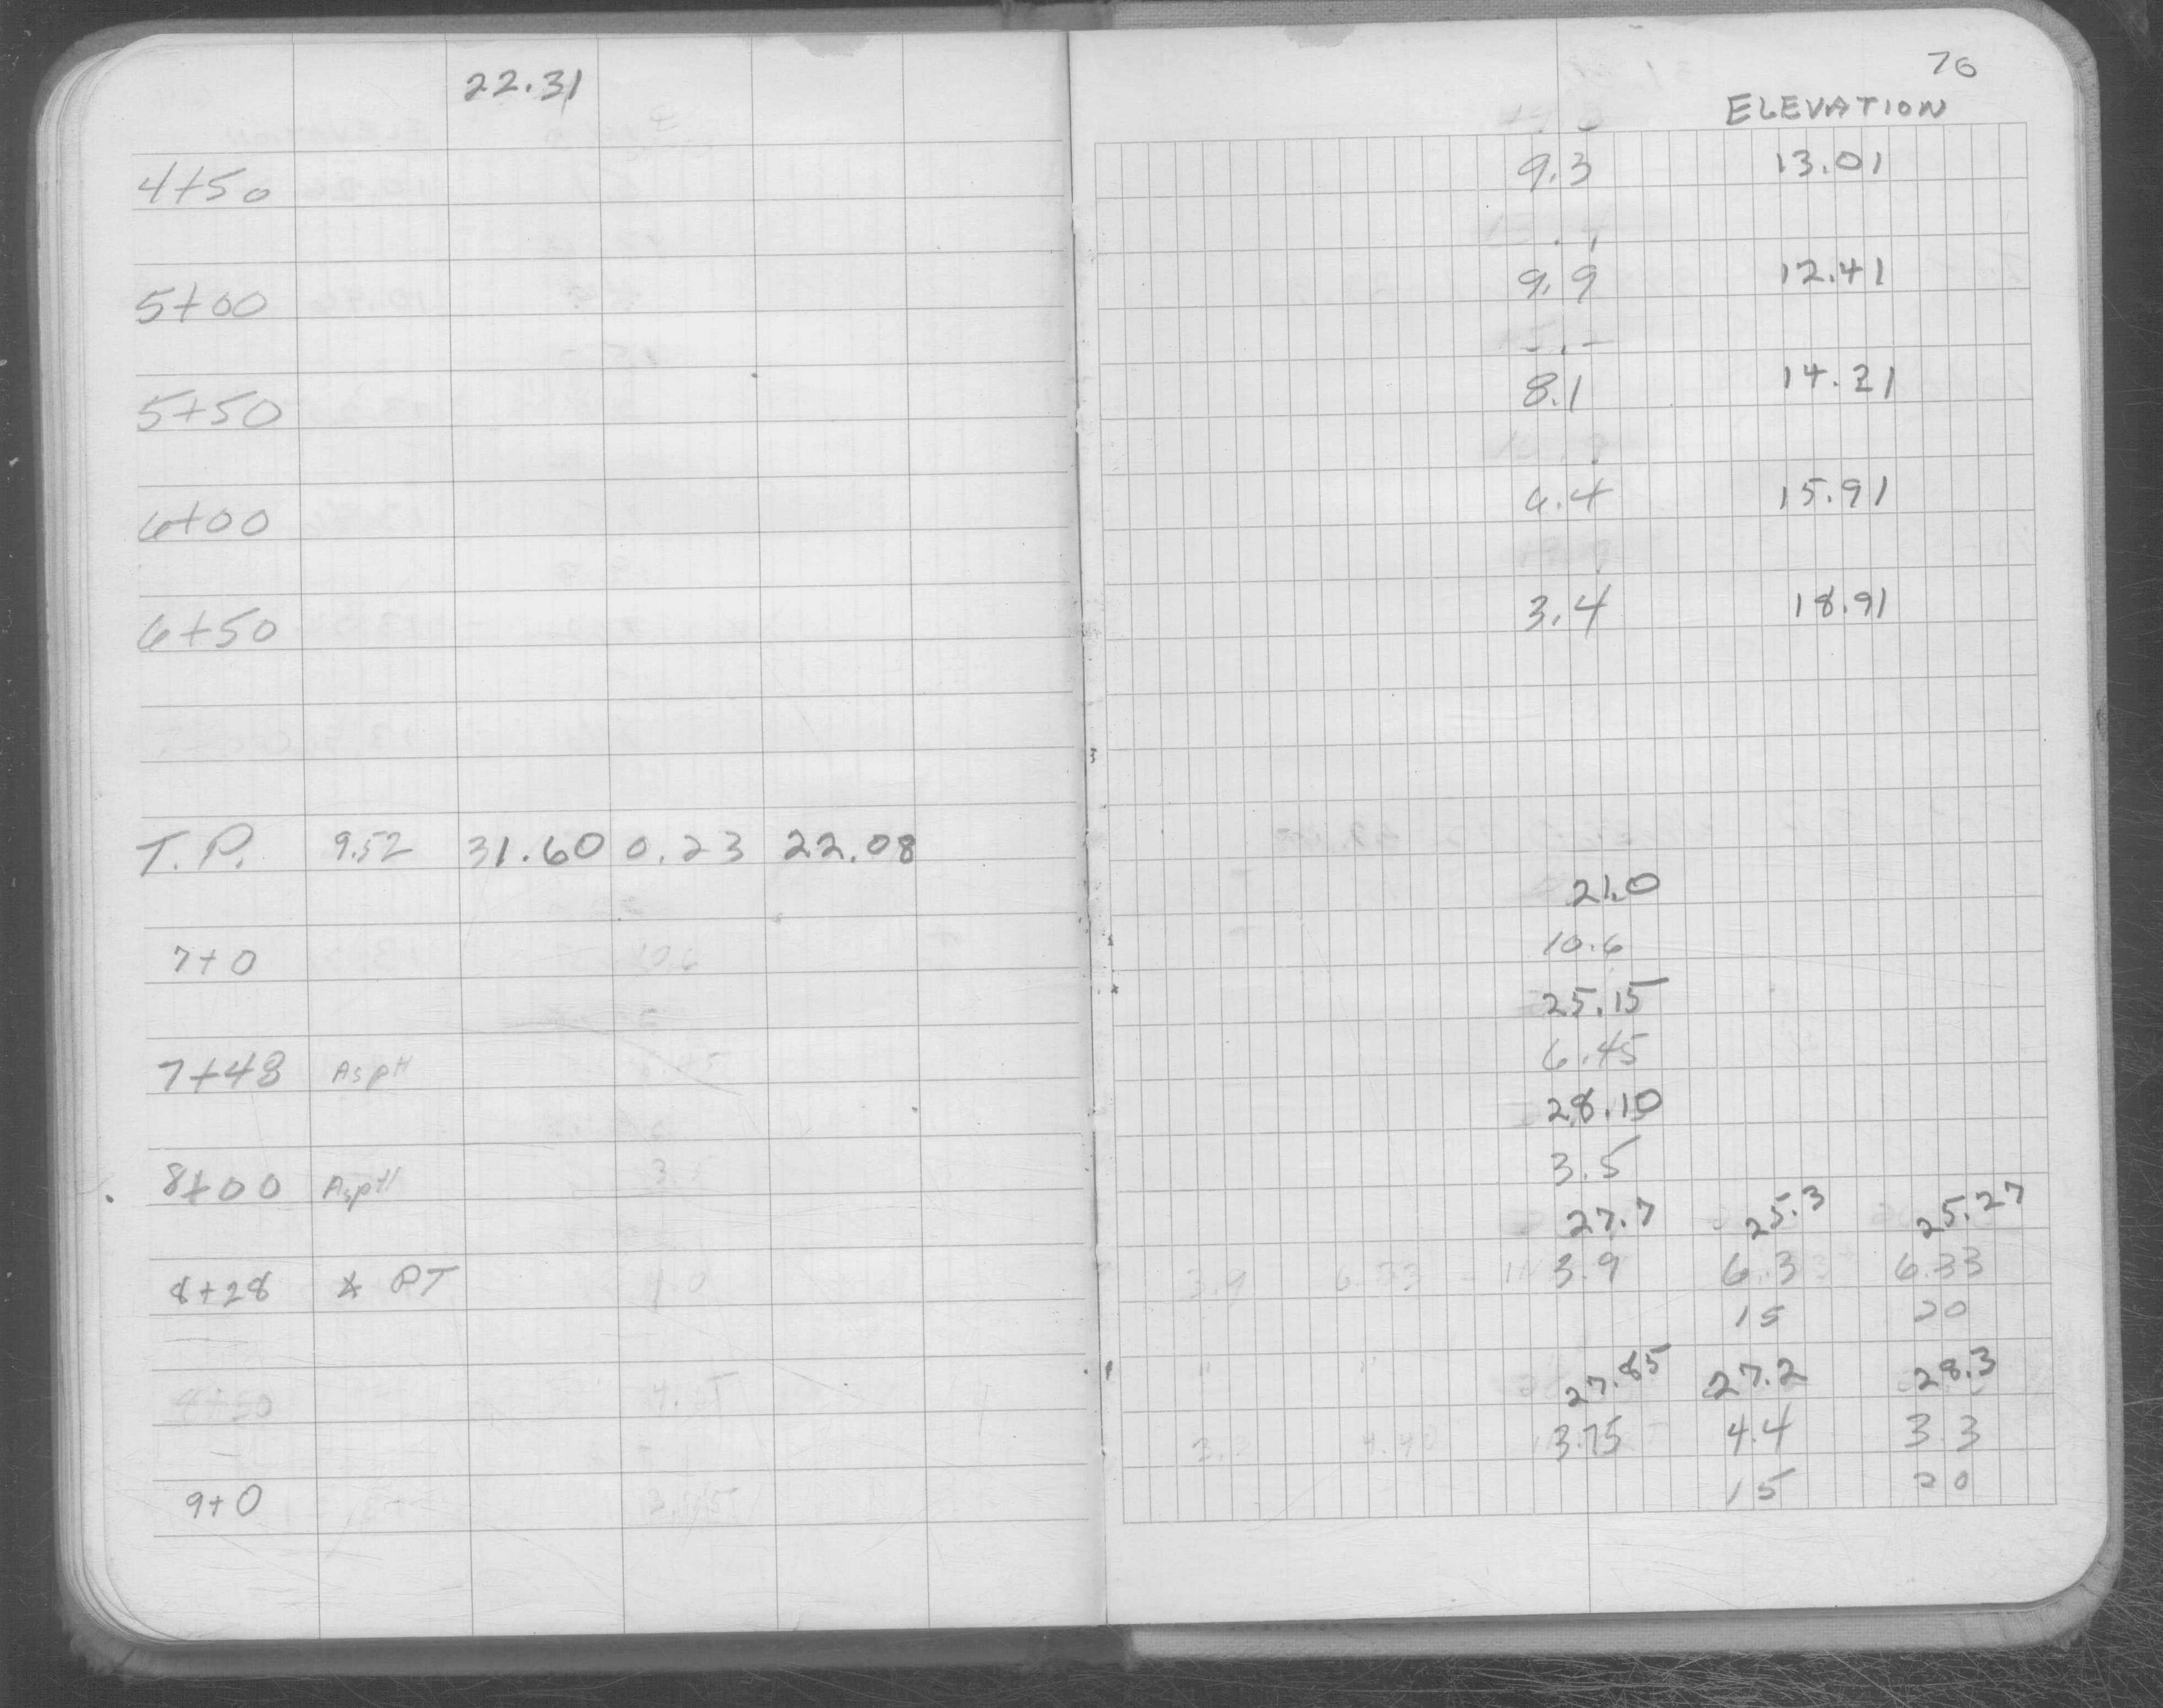 22.31
76
ELEVATION
4+50 9.3 13.01
5+00 9.9 12.41
5+50 8.1 14.21
6+00 6.4 15.91
6+50 3.4 18.91
T.P. 9.52 31.60 0.23 22.08
21.0
7+0 10.6
25.15
7+48 AspH 6.45
28.10
8+00 AspH 3.5
27.7 25.3 25.27
8+28 * PT 3.9 6.3 6.33
15 20
27.85 27.2 28.3
3.75 4.4 3.3
9+0 15 20